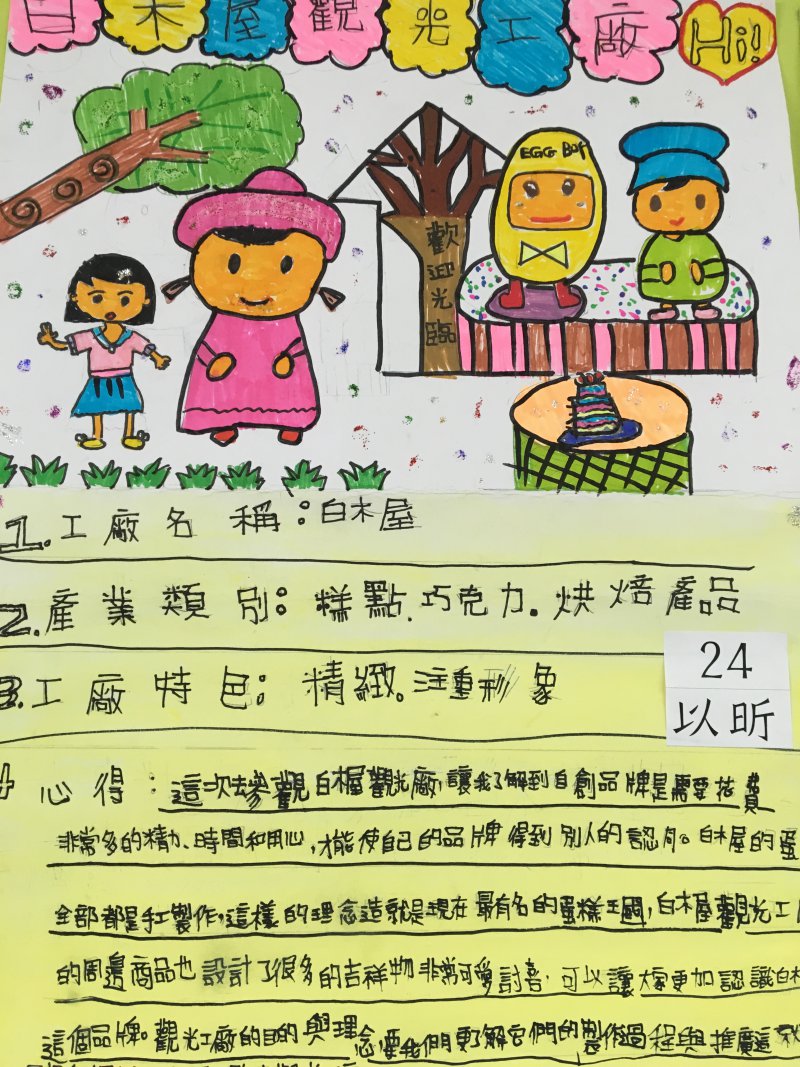 白木屋觀光工廠 Hi!
EGG BOY
歡迎光臨
1.工廠名稱:白木屋
2.產業類別:糕點.巧克力.烘焙產品
3.工廠特色:精緻。注重形象
24
以昕
4 心得:這次去參觀白木屋觀光廠,讓我了解到自創品牌是需要花費
非常多的精力、時間和用心,才能使自己的品牌得到別人的認同。白木屋的蛋
全部都是手工製作,這樣的理念造就是現在最有名的蛋糕王國,白木屋觀光工
的周邊商品也設計了很多的吉祥物非常可愛討喜,可以讓大家更加認識白木
這個品牌。觀光工廠的目的與理念,要我們更了解它們的製作過程與推廣這